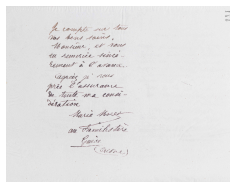 Je compte sur tous
vos bons soins,
Monsieur, et vous
en remercie sincè-
rement à l'avance
Agréez je vous
prie l'assurance
de toute ma consi-
dération
Maria
au
(Aisne)